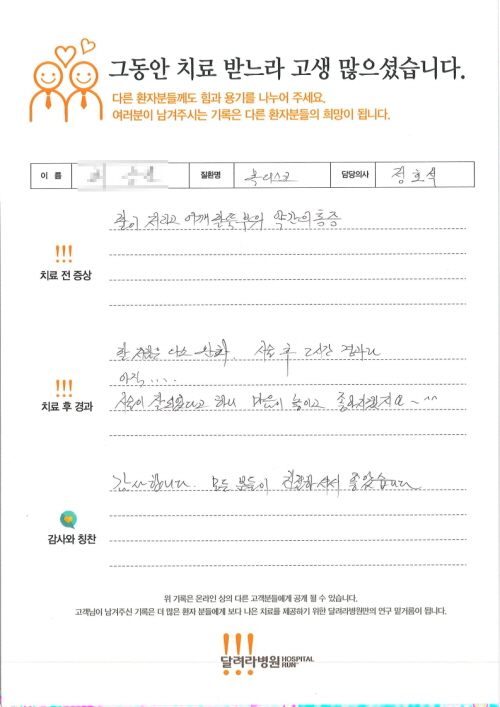 그동안 치료 받느라 고생 많으셨습니다.
다른 환자분들께도 힘과 용기를 나누어 주세요.
여러분이 남겨주시는 기록은 다른 환자분들의 희망이 됩니다.
이 름 질환명 목디스크 담당의사 정호석
팔이 저리고 어깨 팔쭉부의 약간의 통증
!!!
치료 전 증상
팔 저림은 다소 완화 시술 후 2시간 경과라
아직....
!!!
치료 후 경과
시술이 잘 되었다고 하니 마음이 놓이고 좋아지겠지요 ~ ^^
감사합니다. 모든 분들이 친절하셔서 좋았습니다
감사와 칭찬
위 기록은 온라인 상의 다른 고객분들에게 공개 될 수 있습니다.
고객님이 남겨주신 기록은 더 많은 환자 분들에게 보다 나은 치료를 제공하기 위한 달려라병원만의 연구 밑거름이 됩니다.
!!!
달려라병원 HOSPITAL RUN